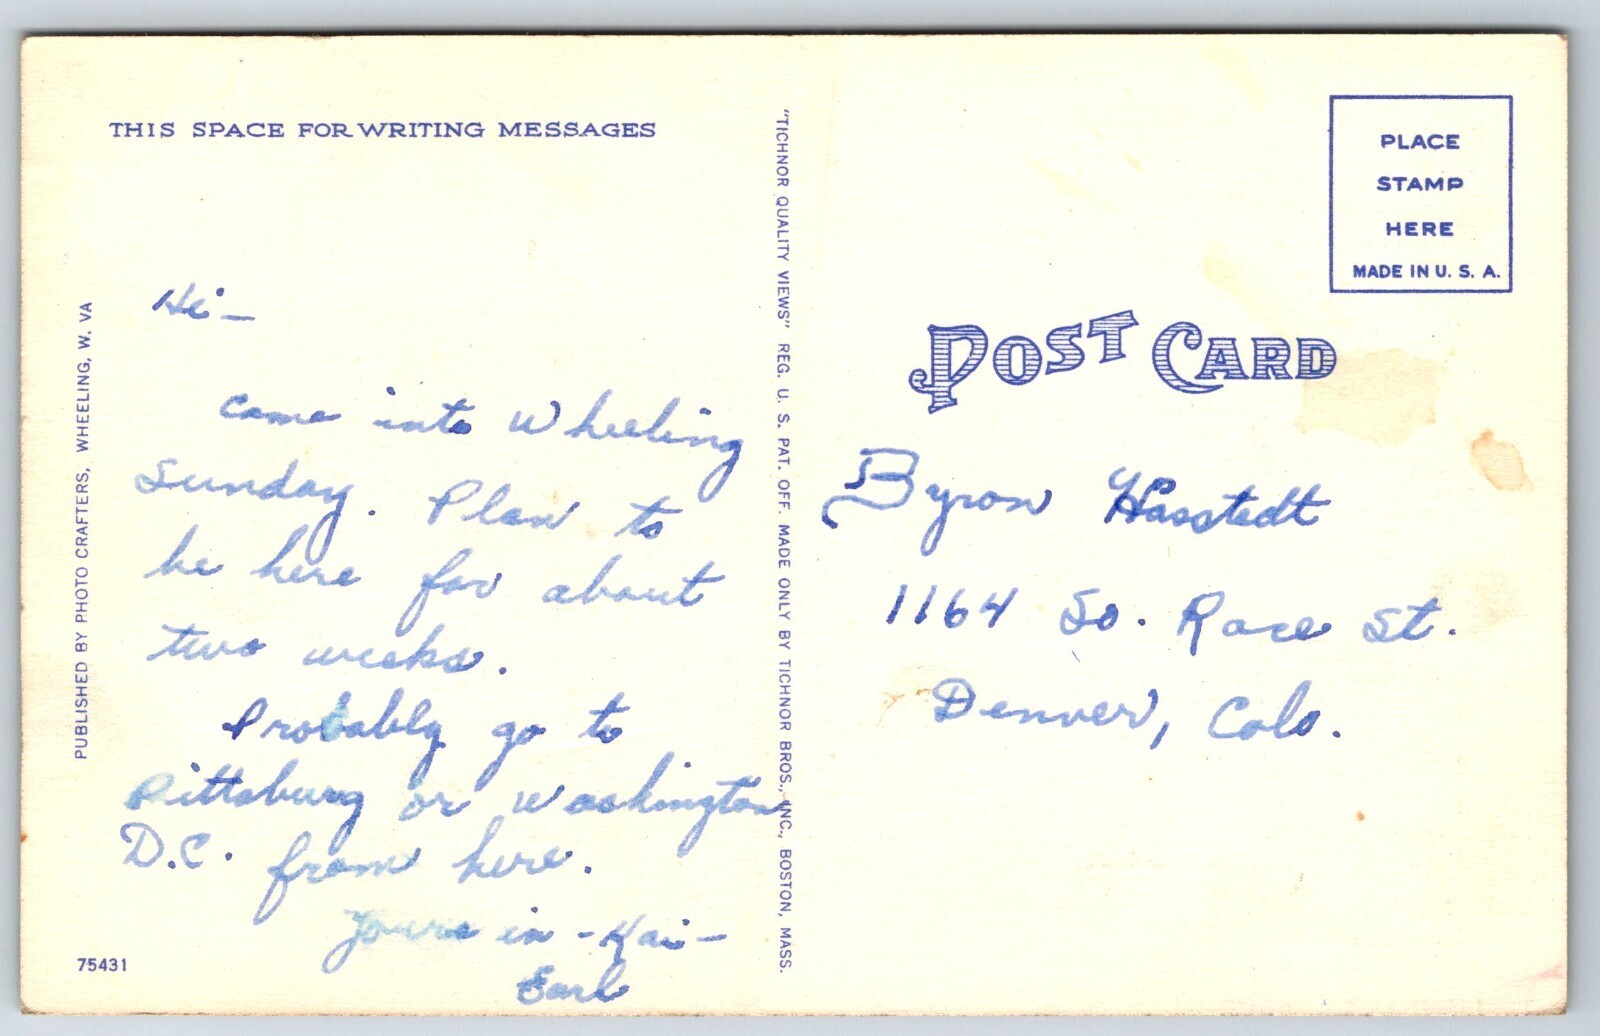 THIS SPACE FOR WRITING MESSAGES
Hi -
Came into Wheeling
Sunday. Plan to
be here for about
two weeks.
Probably go to
Pittsburg or Washington
D.C. from here.
Yours in - Kai -
Earl
75431
PUBLISHED BY PHOTO CRAFTERS, WHEELING, W. VA
"TICHNOR QUALITY VIEWS" REG. U. S. PAT. OFF. MADE ONLY BY TICHNOR BROS., INC., BOSTON, MASS.
PLACE
STAMP
HERE
MADE IN U. S. A.
POST CARD
Byron Hasstedt
1164 So. Race St.
Denver, Colo.